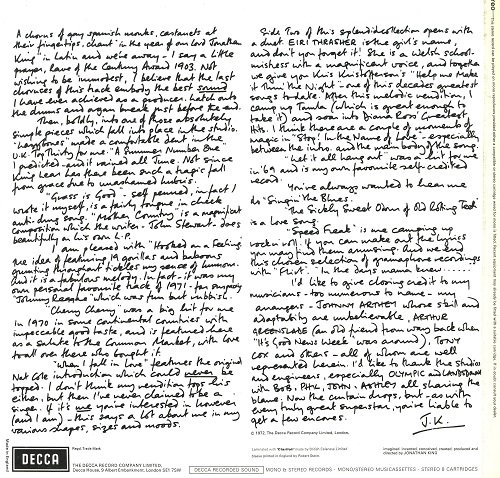 A chorus of gay spanish monks, castanets at
their fingertips, chant "in the year of our Lord Jonathan
King" in Latin and we're away - I say a little
prayer, lave of the Century Award 1903. Not
wishing to be immodest, I believe that the last
choruses of this track embody the best sound
I have ever achieved as a producer. Hark at
the drums and organ break just before the end.
Then, boldly, into one of those absolutely
simple pieces which fall into place in the studio.
"Lazybones" made a comfortable dent in the
U.K. Top Thirty for me. "A Summer Number One"
I predicted and it rained all June. Not since
King Lear has there been such a tragic fall
from grace due to unashamed hubris.
"Grass is Good" - self penned, in fact I
wrote it myself, is a fairly tongue in cheek
anti-drug song. "Mother Country" is a magnificent
composition which the writer - John Stewart - does
beautifully on his own L.P.
I am pleased with "Hooked on a Feeling".
The idea of featuring 19 gorillas and baboons
grunting throughout tickles my sense of humour.
And it is a fabulous melody. In fact, it was my
own personal favourite track of 1971 - far superior
"Johnny Reggae" which was fun but rubbish.
"Cherry Cherry" was a big hit for me
in 1970 in some Continental countries with
impeccable good taste, and is featured here
as a salute to the Common Market, with love
to all over there who bought it.
"When I fall in Love" features the original
Nat Cole introduction which could never be
topped. I don't think my rendition tops his
either, but then I've never claimed to be a
singer. If it's me you're interested in however
(and I am), this says a lot about me in my
various shapes, sizes and moods.
Side Two of this splendid collection opens with
a duet. EIRI THRASHER is the girl's name,
and don't you forget it! She is a Welsh school-
mistress with a magnificent voice, and together
we give you Kris Kristofferson's "Help me Make
it Thru' the Night" - one of this decades greatest
songs to date. After this melodic rendition, I
camp up Tamla (which is great enough to
take it) and soar into Diana Ross' Greatest
Hits. I think there are a couple of moments of
magic in "Stop! In the Name of Love" - especially
between the intro. and the main body of the song.
"Let it all hang out" was a hit for me
in '69 and is my own favourite self-credited
record.
You've always wanted to hear me
do "Singin' The Blues".
The Sickly Sweet Odour of Old Rotting Teeth
is a love song.
"Speed Freak" is me camping up
rock n' roll. If you can make out the lyrics
you may find them amusing. And we end
this chosen selection of gramophone recordings
with "Flirt". In the days名 knew ......
I'd like to give closing credit to my
musicians - too numerous to name - my
arrangers - JOHNNY ARTHEY whose skill and
adaptability are unbelievable, ARTHUR
GREENSLADE (an old friend from way back when
"It's Good News Week" was around), TONY
COX and others - all of whom are well
represented herein. I'd like to thank the studios
and engineers, especially OLYMPIC and LANSDOWNE
with BOB, PHIL, JOHN & ASHLEY all sharing the
blame. Now the curtain drops, but as with
every truly great superstar, you're liable to
get a few encores.
J.K.
© 1972, The Decca Record Company Limited, London.
DECCA
Regd. Trade Mark
THE DECCA RECORD COMPANY LIMITED,
Decca House, 9 Albert Embankment, London SE1 7SW
Laminated with 'Clarifoil' made by British Celanese Limited
Sleeve printed in England by Robert Stace
imagined invented conceived created produced and
directed by JONATHAN KING
DECCA RECORDED SOUND
MONO & STEREO RECORDS · MONO/STEREO MUSICASSETTES · STEREO 8 CARTRIDGES
Made in England